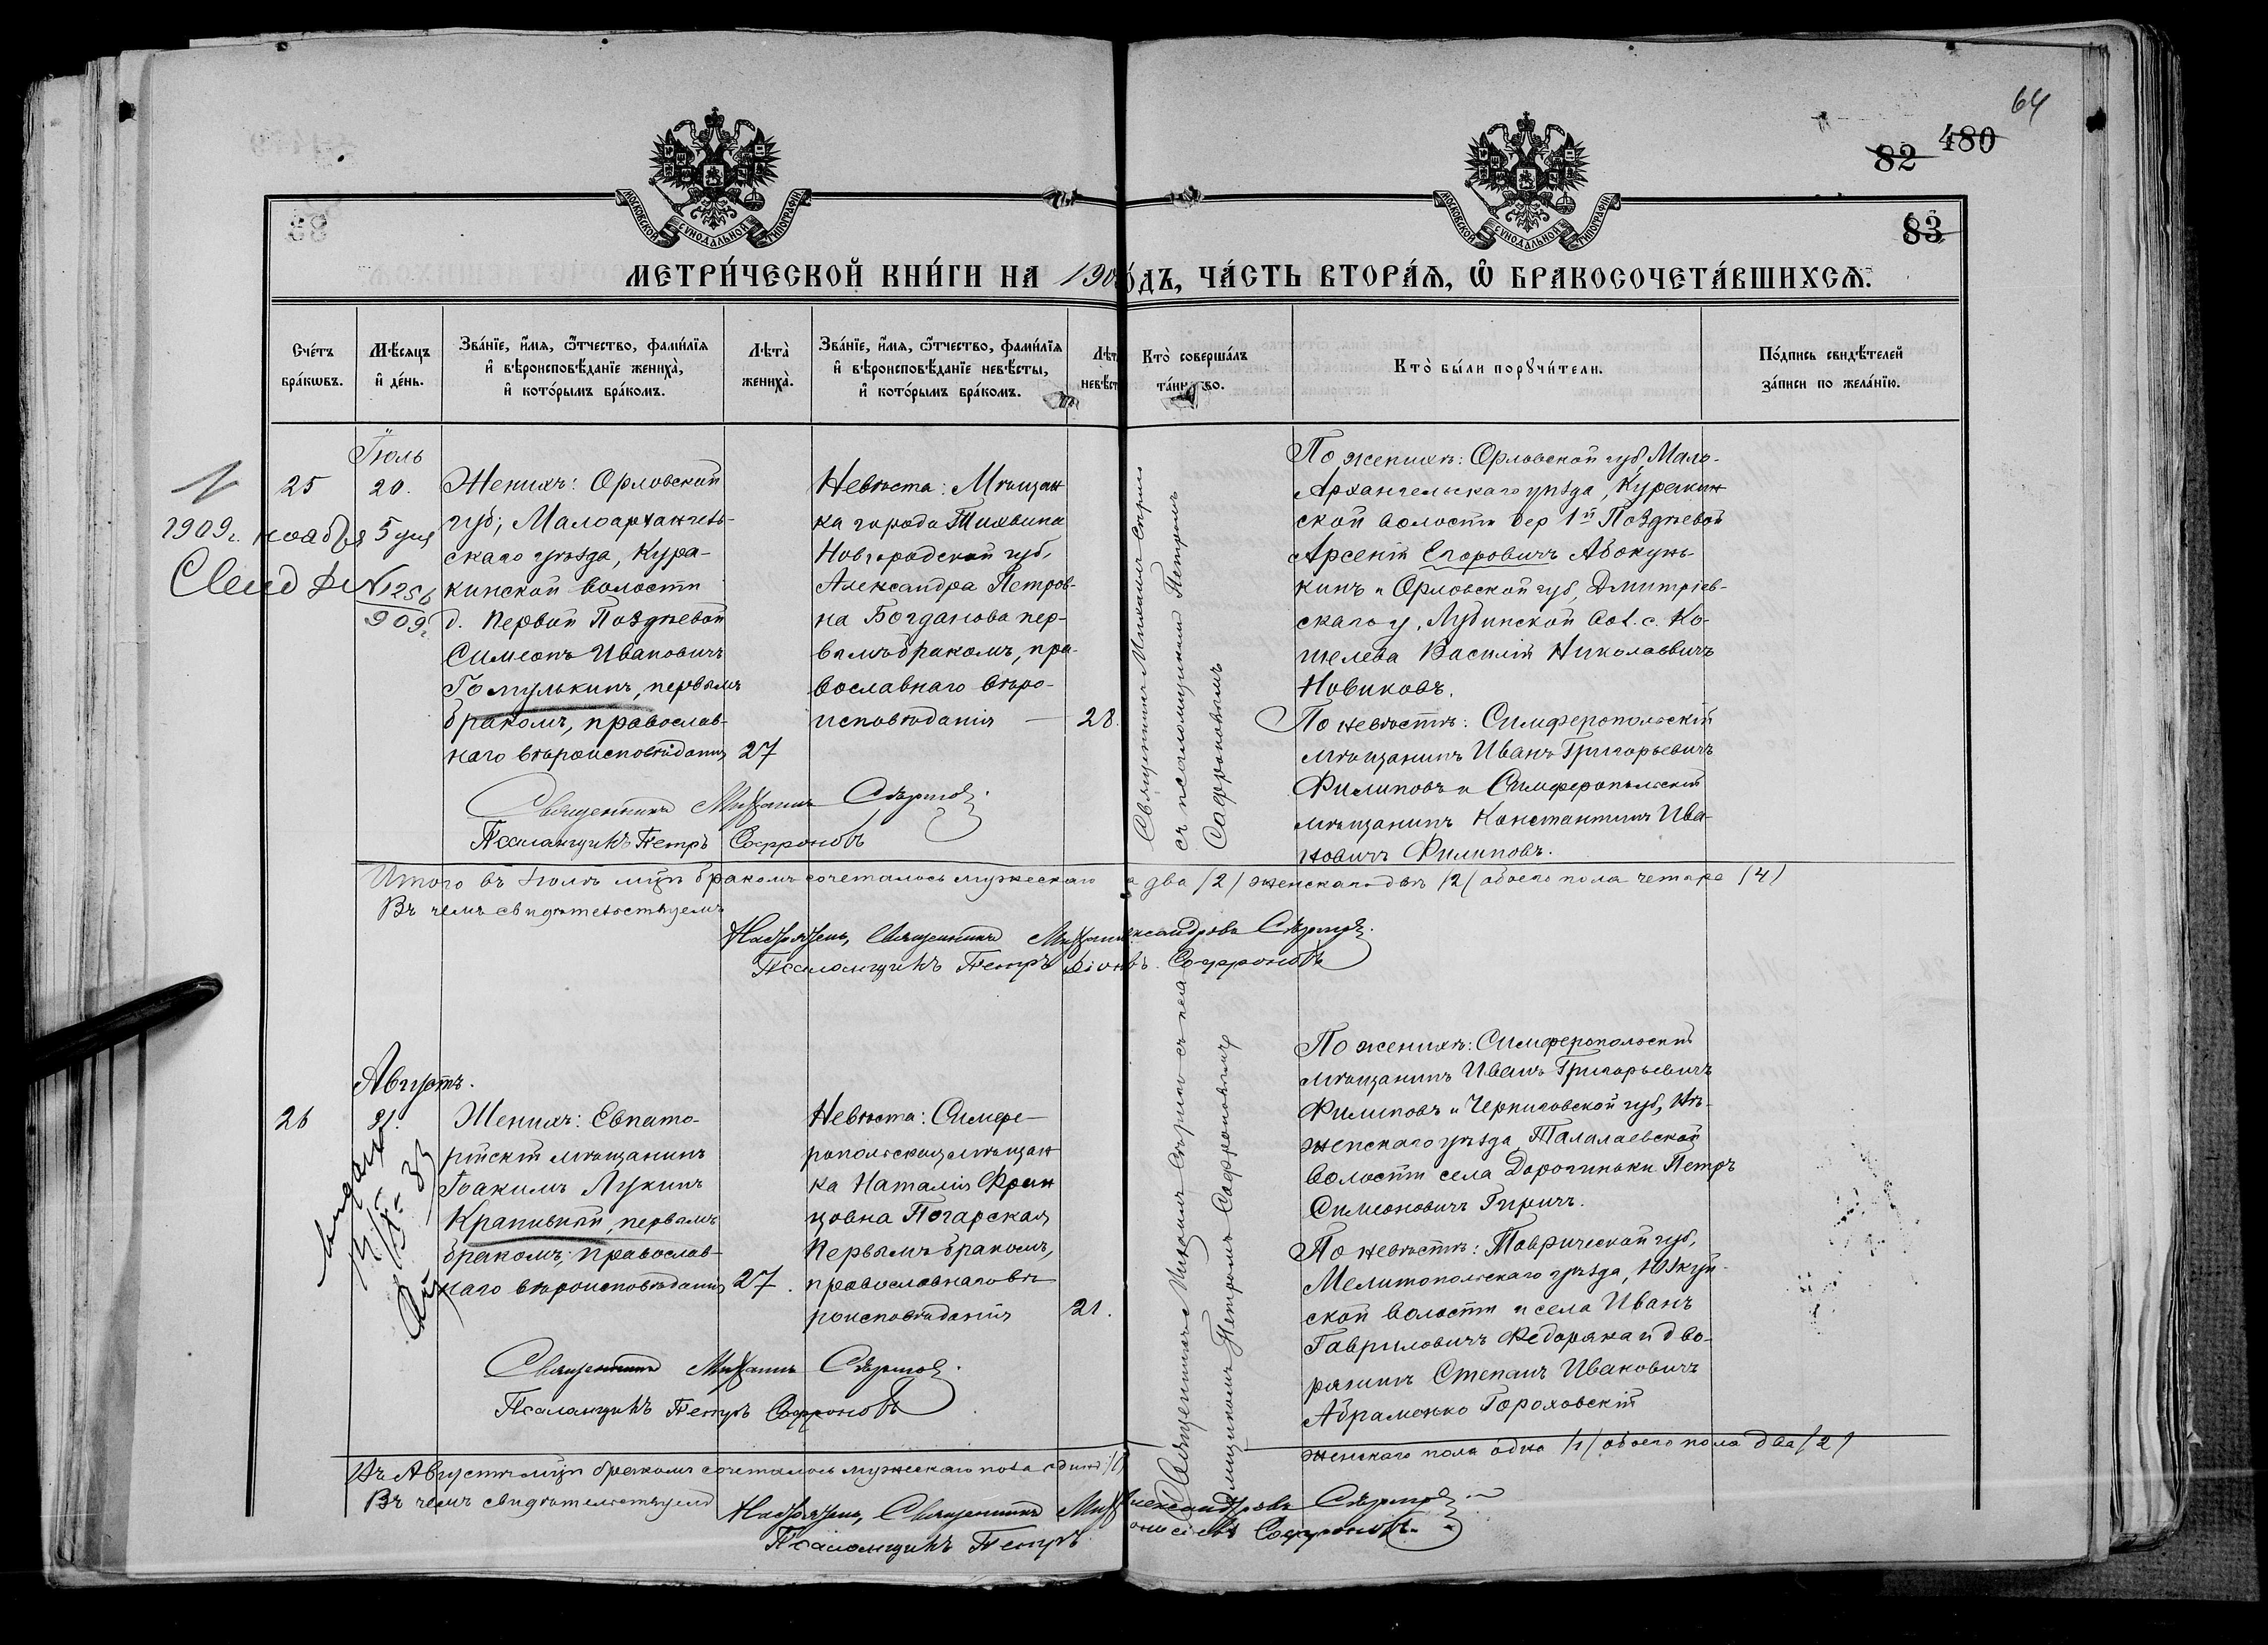 64
82 480
83
МОСКОВСКОЙ СѴНОДАЛЬНОЙ ТИПОГРАФІИ
МОСКОВСКОЙ СѴНОДАЛЬНОЙ ТИПОГРАФІИ
МЕТРИ́ЧЕСКОЙ КНИ́ГИ НА 190 ОДЪ, ЧА́СТЬ ВТОРА́Я, Ѿ БРАКОСОЧЕТА́ВШИХСЯ.
Сче́тъ
бра́кωвъ.
Мѣ́сяцъ
и҆ де́нь.
Зва́нїе, и҆́мя, ѻ҆́тчество, фами́лїя
и҆ вѣроисповѣ́данїе жениха̀,
и҆ кото́рымъ бра́комъ.
Лѣта̀
жениха̀.
Зва́нїе, и҆́мя, ѻ҆́тчество, фами́лїя
и҆ вѣроисповѣ́данїе невѣ́сты,
и҆ кото́рымъ бра́комъ.
Лѣт
невѣст
Кто̀ соверша́лъ
та́инство.
Кто̀ бы́ли порꙋчи́тели.
По́дпись свидѣ́телей
за́писи по жела́нїю.
Іюль
25
20.
1909г. ноября 5 дня
№ 256
909г.
Женихъ: Орловской
губ., Малоархангель-
скаго уѣзда, Кура-
кинской волости
д. Первой Позднѣевой
Симеонъ Ивановичъ
Гомулькинъ, первымъ
бракомъ, православ-
наго вѣроисповѣданія
27
Невѣста: Мѣщан
ка города Тихвина
Новгородской губ.
Александра Петров-
на Богданова пер-
вымъ бракомъ, пра-
вославнаго вѣро-
исповѣданія —
28.
Священникъ Михаилъ
съ псаломщикомъ Петромъ
Софроновымъ
По женихѣ: Орловской губ. Мало-
Архангельскаго уѣзда, Куракин
ской волости дер 1й Позднѣевой
Арсеній Егоровичъ Авокунь-
кинъ и Орловской губ. Дмитріев-
скаго у. Лубинской вол. с. Ко-
шелева Василій Николаевичъ
Новиковъ.
По невѣстѣ: Симферопольскій
мѣщанинъ Иванъ Григорьевичъ
Филиповъ и Симферопольскій
мѣщанинъ Константинъ Ива-
новичъ Филиповъ.
Священникъ Михаилъ
Псаломщикъ Петръ Софроновъ
Итого въ Іюлѣ м-цѣ бракомъ сочеталось мужескаго а два /2/ женскаго двѣ /2/ обоего пола четыре /4/
Въ чемъ свидѣтельствуемъ
Священникъ Михаилъ ександровъ
Псаломщикъ Петръ Софроновъ
Августъ.
26
21.
выдана
Женихъ: Евпато-
рійскій мѣщанинъ
Іоакимъ Лукинъ
Крапивной, первымъ
бракомъ, православ-
наго вѣроисповѣданія
27.
Невѣста: Симфе-
ропольская мѣщан
ка Наталія Фран
цовна Погарская
первымъ бракомъ,
православнаго вѣ
роисповѣданія
21.
Священникъ Михаилъ съ пса
ломщикомъ Петромъ Софроновымъ
По женихѣ: Симферопольскій
мѣщанинъ Иванъ Григорьевичъ
Филиповъ и Черниговской губ. Нѣ-
женскаго уѣзда Талалаевской
волости села Дорогиньки Петръ
Симеоновичъ Гиричъ.
По невѣстѣ: Таврической губ.
Мелитопольскаго уѣзда, Юзкуй-
ской волости и села Иванъ
Гавриловичъ Федоряка и дво-
рянинъ Степанъ Ивановичъ
Абраменко Гороховскій
Священникъ Михаилъ
Псаломщикъ Петръ Софроновъ
Въ Августѣ м-цѣ бракомъ сочеталось мужескаго пола одинъ /1/ женскаго пола одна /1/ обоего пола два /2/
Въ чемъ свидѣтельствуемъ
Священникъ Мих лександровъ
Псаломщикъ Петръ Софроновъ